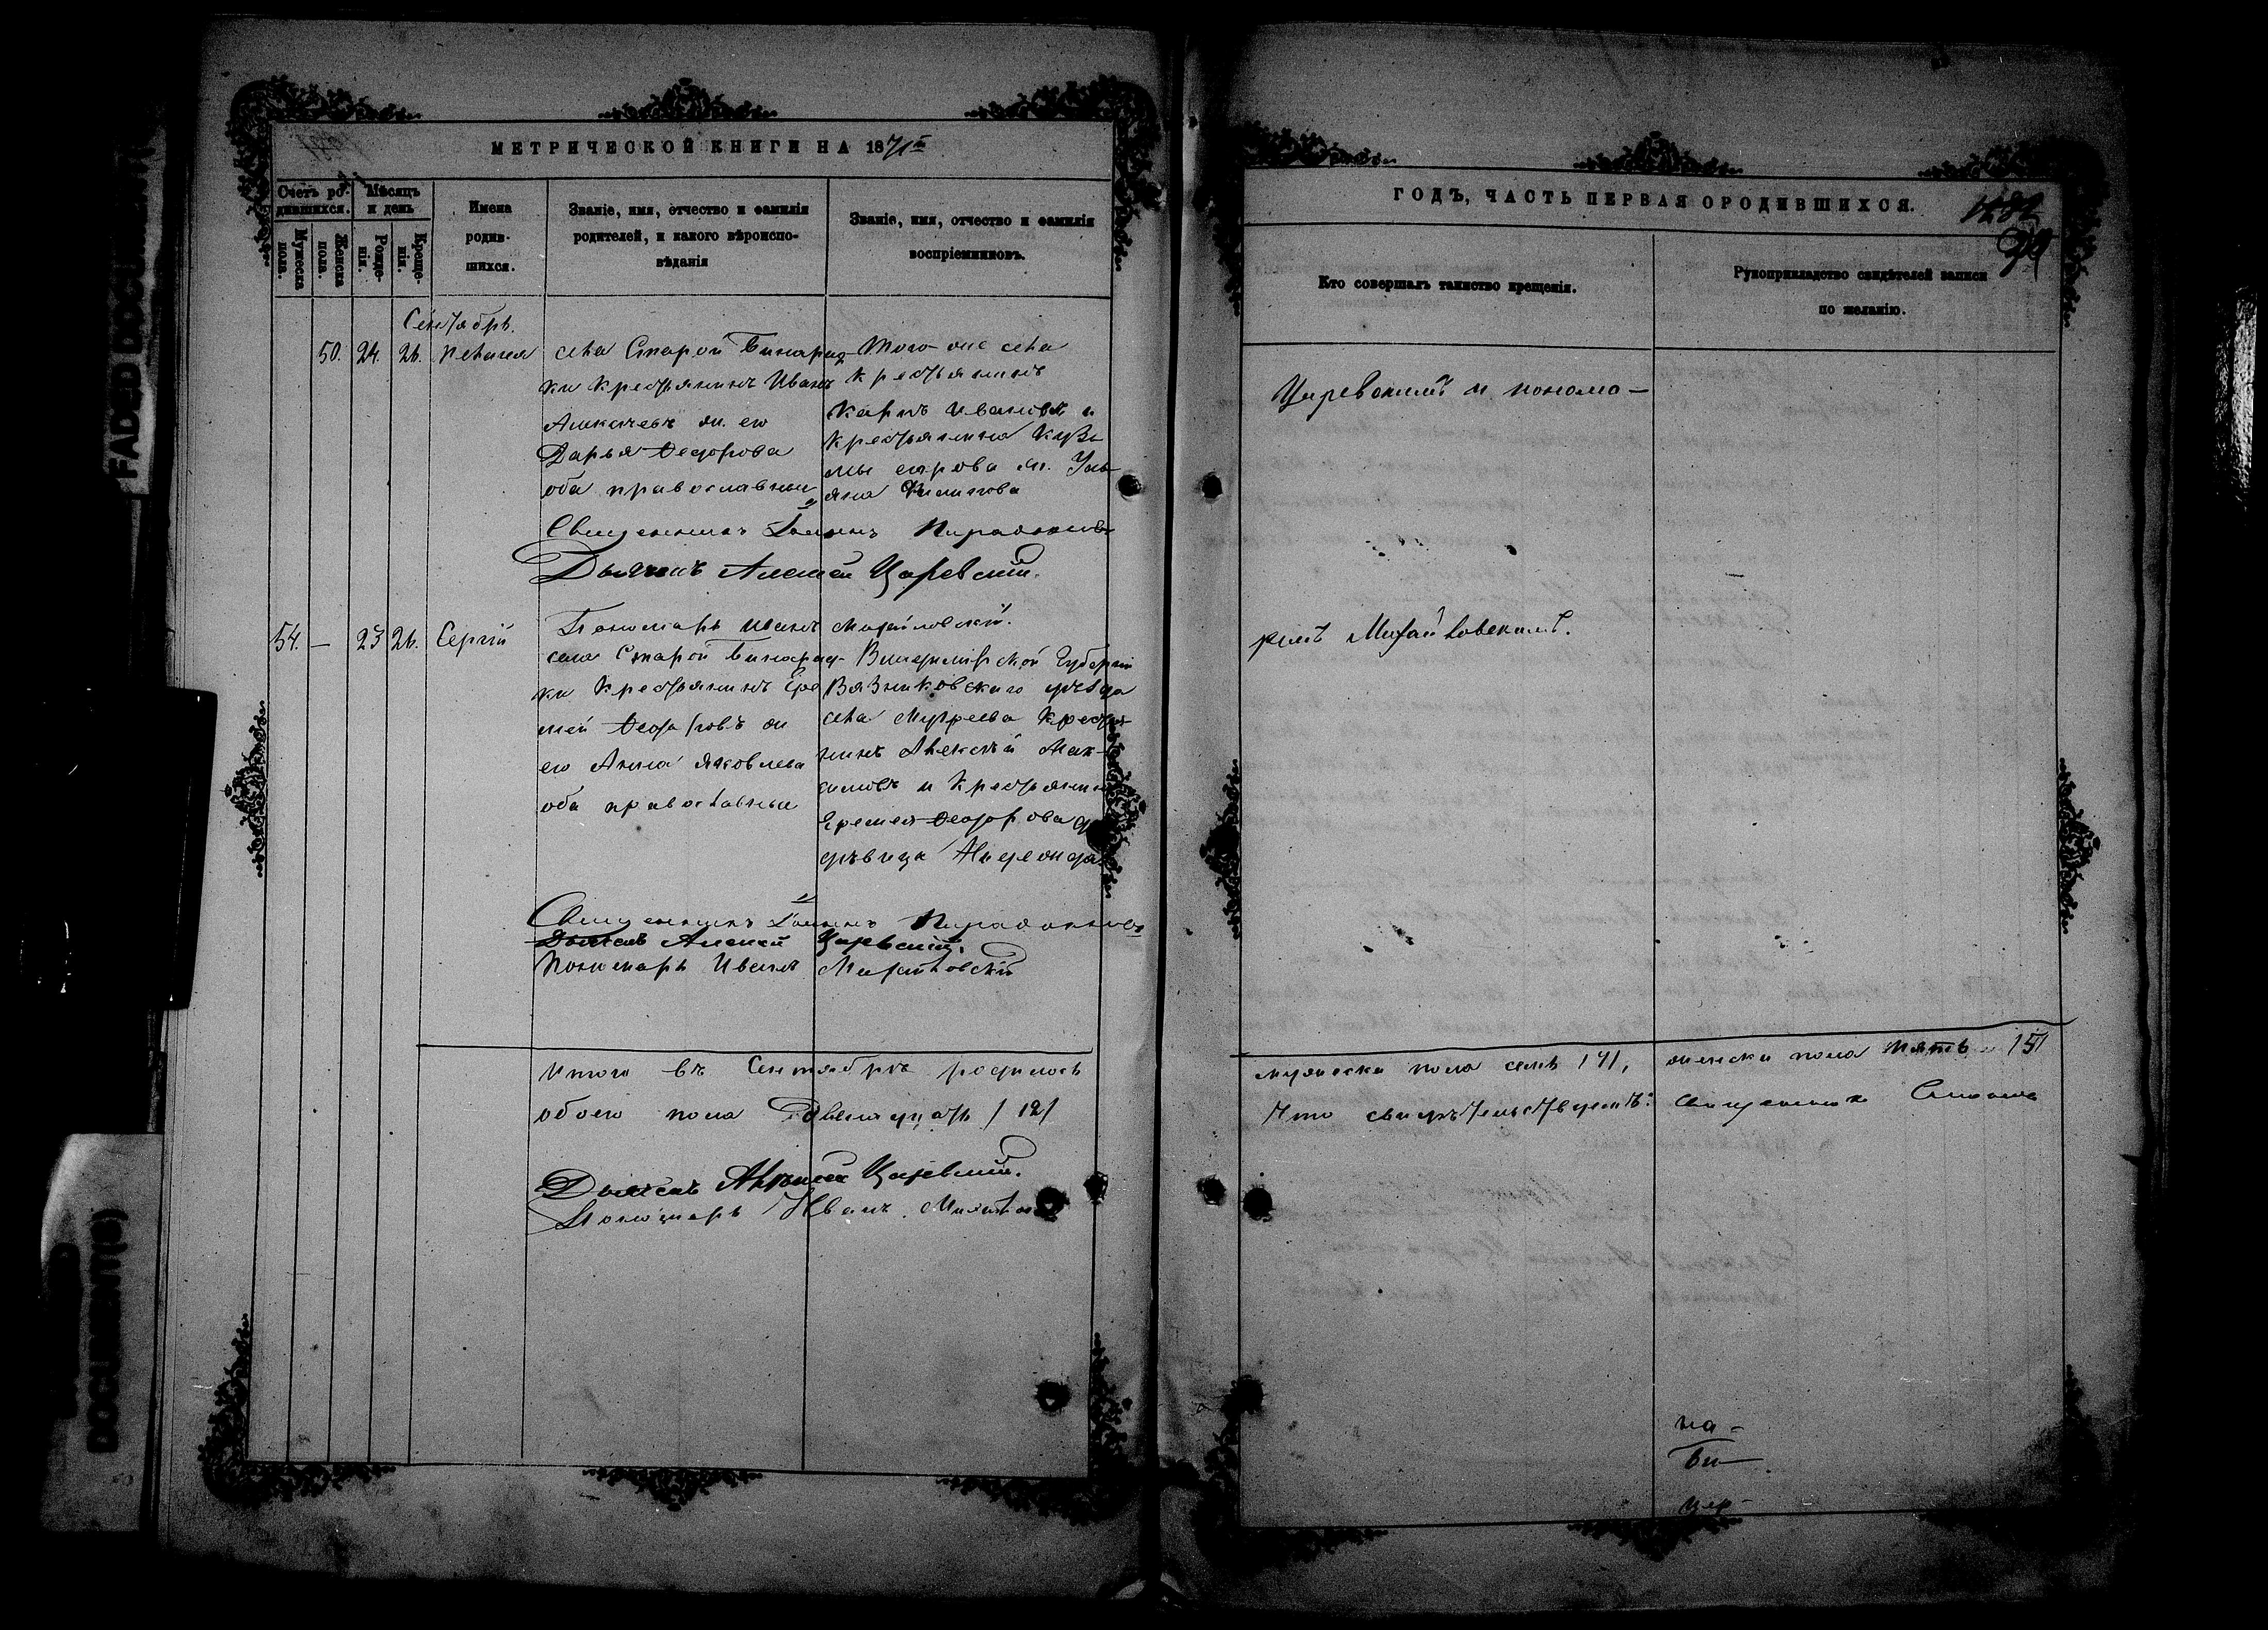 FADED DOCUMENT(
DOCUMENT(S)
МЕТРИЧЕСКОЙ КНИГИ НА 1871й
Счетъ родившихся.
Мѣсяцъ и день
Мужеска пола.
Женска пола.
Рожденія.
Крещенія.
Имена родившихся.
Званіе, имя, отчество и фамилія родителей, и какого вѣроисповѣданія
Званіе, имя, отчество и фамилія воспріемниковъ.
Сентябрь.
50. 24. 26. Пелагея
села Старой Бинарад-
ки крестьянинъ Иванъ
Алексѣевъ ж. его
Дарья Ѳеодорова
оба православные
Того-же села
крестьянинъ
Карпъ Ивановъ и
крестьянина Кузь-
мы ж. Уль-
яна Филипова
Священникъ Іоаннъ
Дьячекъ Алексей Царевский.
Пономарь Иванъ Михайловский.
54. — 23 26. Сергій
села Старой Бинарад-
ки крестьянинъ Ере
мей Ѳеодоровъ ж
его Анна Яковлева
оба православные
Владимірской Губерніи
Вязниковскаго уѣзда
села крестья-
нинъ Алексѣй Мак-
симовъ и крестьянина
Еремея Ѳеодорова
дѣвица
Священникъ Іоаннъ
Дьячекъ Алексей Царевский.
Пономарь Иванъ Михайловский
Итого въ Сентябрѣ родилось
обоего пола двенадцать /12/
Дьячекъ Алексей Царевский.
Пономарь Иванъ
ГОДЪ, ЧАСТЬ ПЕРВАЯ О РОДИВШИХСЯ.
1282
Кто совершалъ таинство крещенія.
Рукоприкладство свидѣтелей записи по желанію.
Царевскимъ и понома-
ремъ Михайловскимъ.
мужеска пола семь /7/, женска пола пять /5/
Что свидѣтельствуемъ: священникъ
на-
би-
цер-